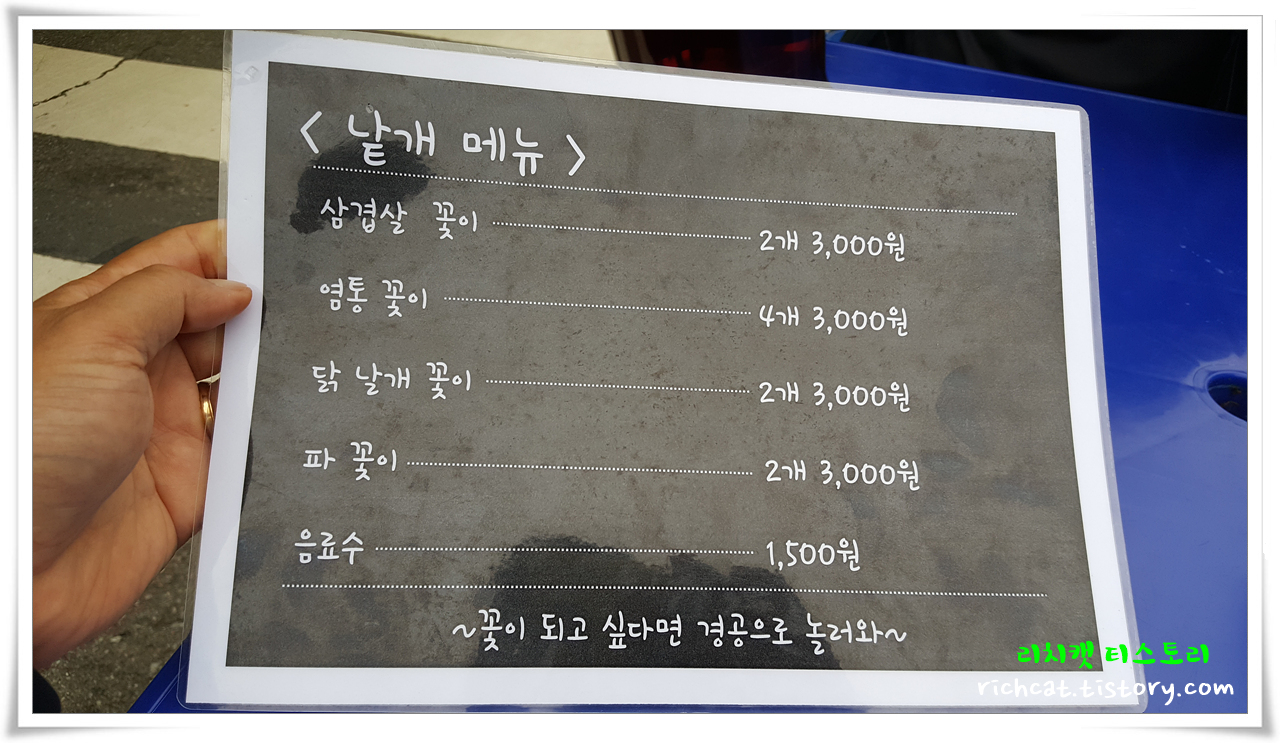 < 낱개 메뉴 >
삼겹살 꽂이 2개 3,000원
염통 꽂이 4개 3,000원
닭 날개 꽂이 2개 3,000원
파 꽂이 2개 3,000원
음료수 1,500원
~꽂이 되고 싶다면 경공으로 놀러와~
리치캣 티스토리
richcat.tistory.com